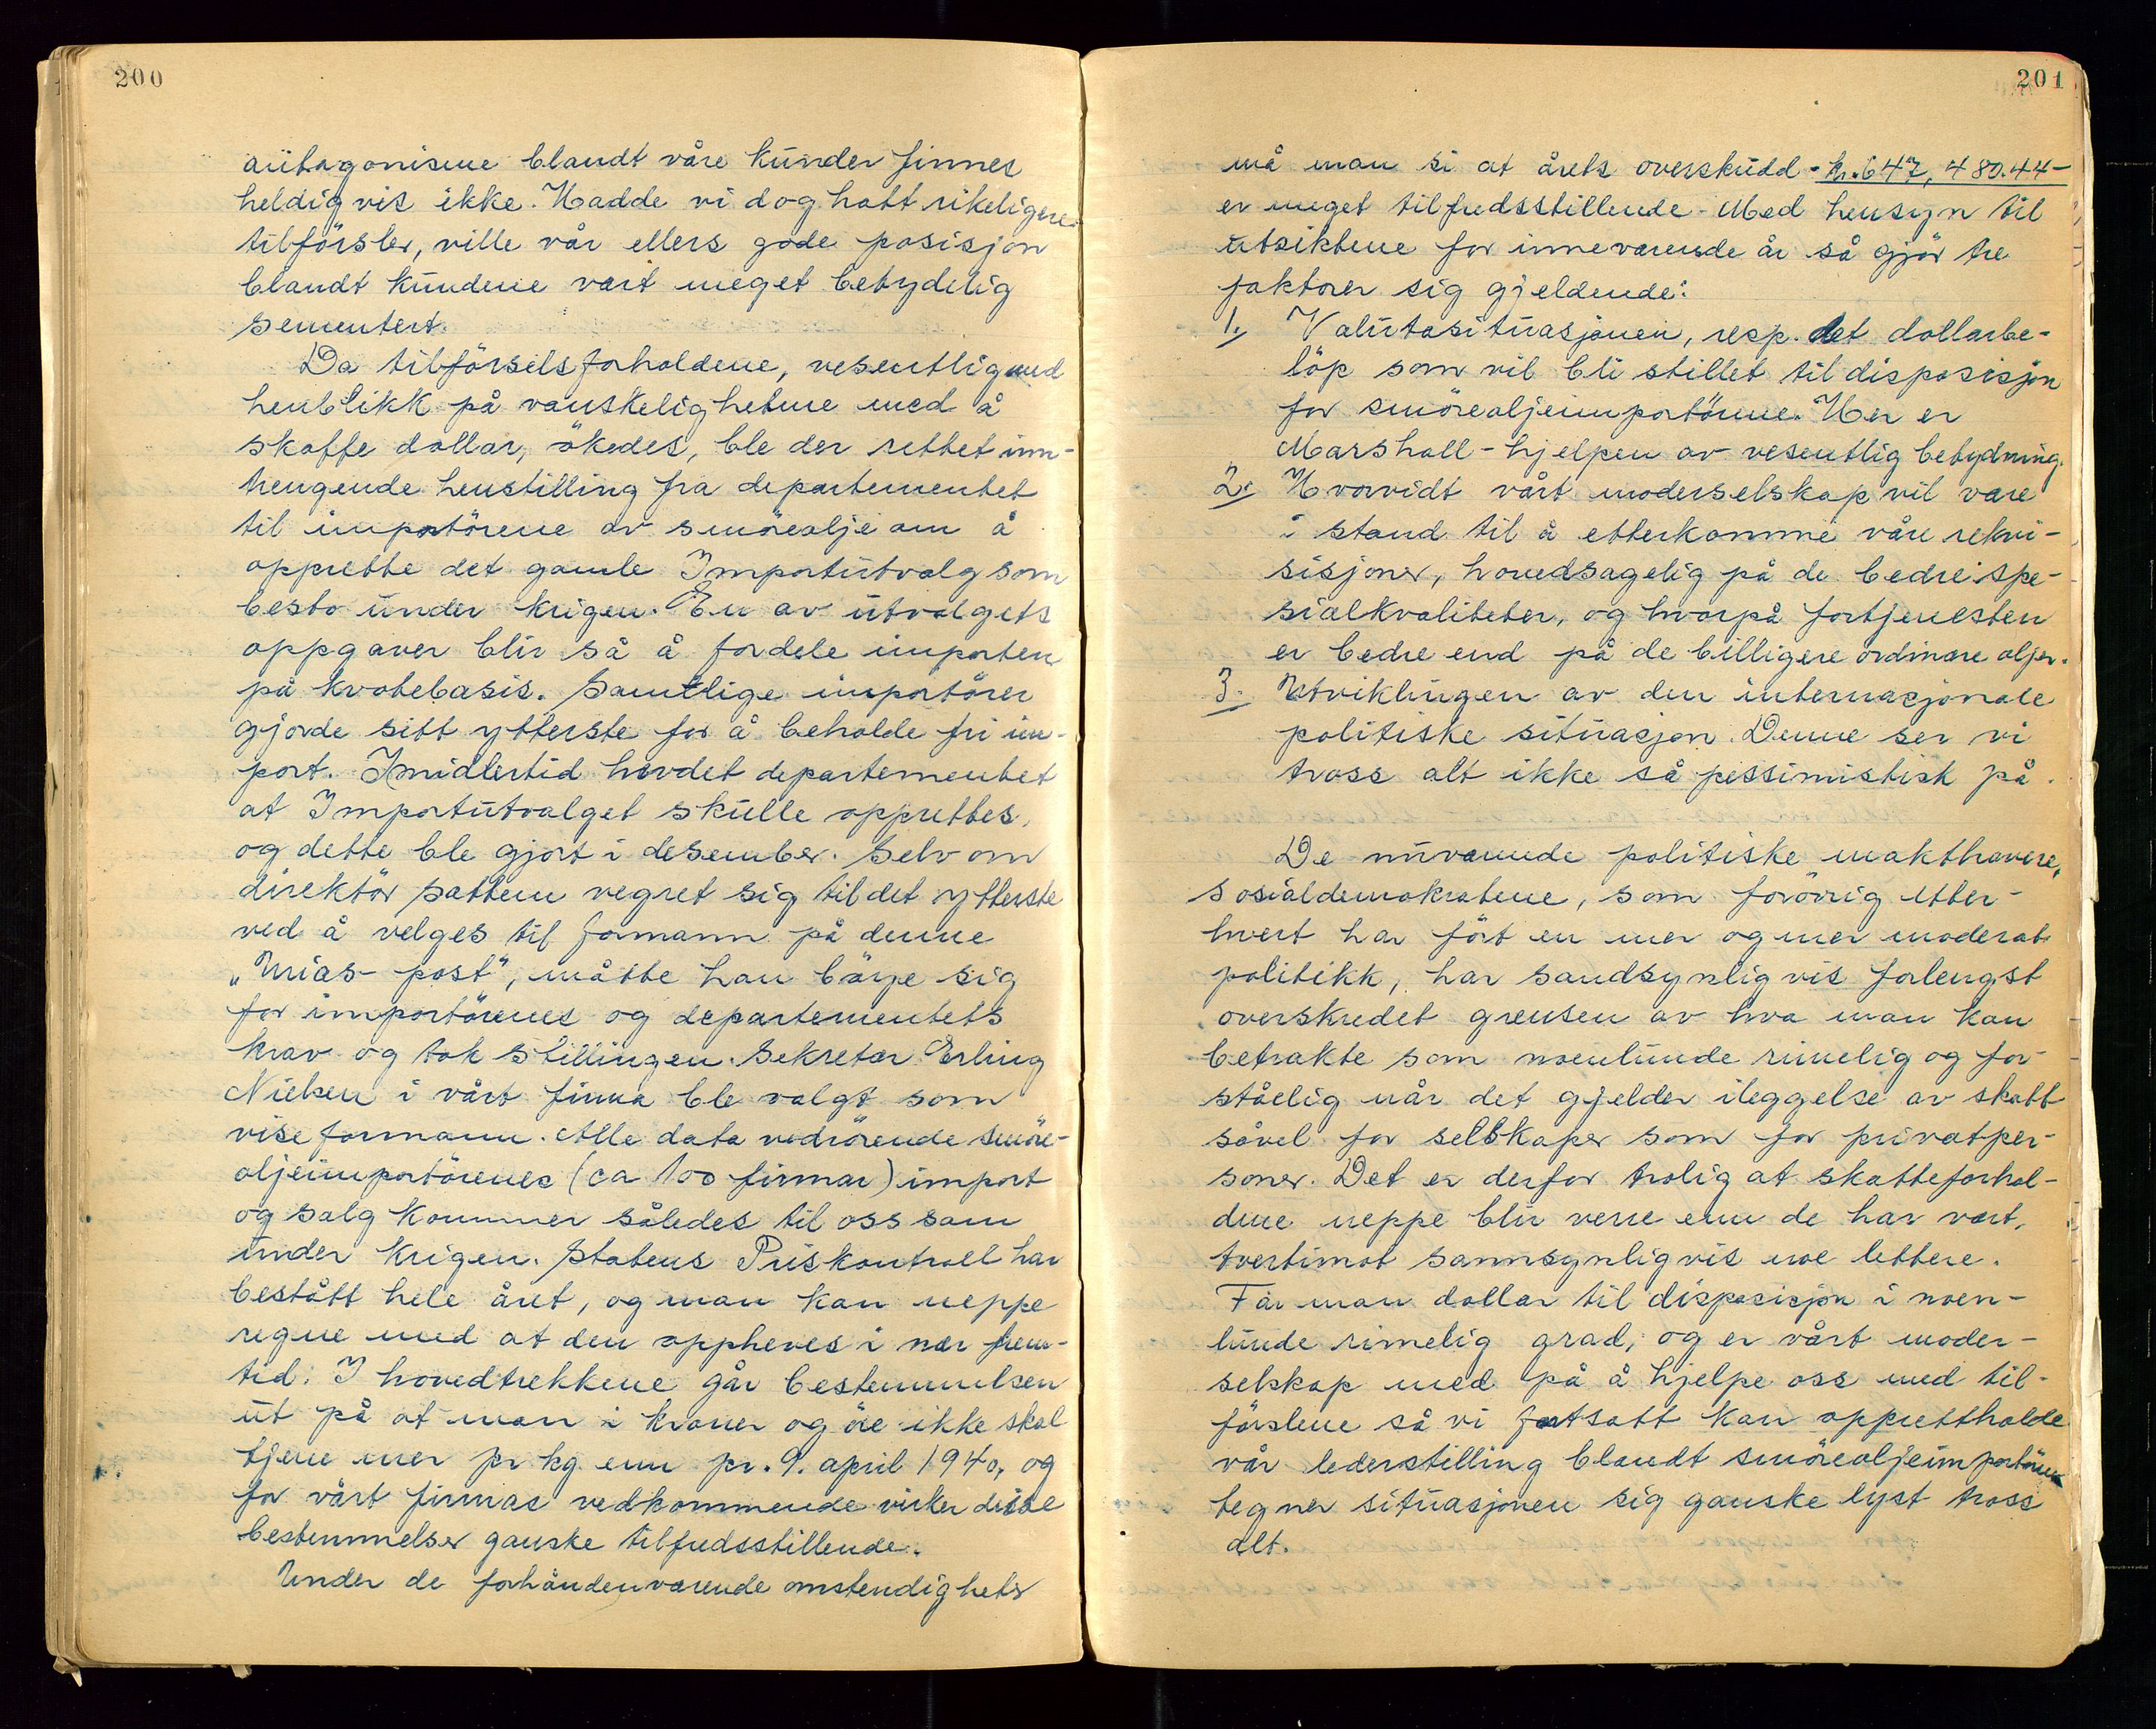 200
antagonisme blandt våre kunder finnes
heldigvis ikke. Hadde vi dog hatt rikeligere
tilförsler, ville vår ellers gode posisjon
blandt kundene vært meget betydelig
sementert.
Da tilförselsforholdene, vesentlig med
henblikk på vanskelighetene med å
skaffe dollar, ökedes, ble der rettet inn-
trengende henstilling fra departementet
til importörene av smöreolje om å
opprette det gamle Importutvalg som
besto under krigen. En av utvalgets
oppgaver blir så å fordele importen
på kvotebasis. Samtlige importörer
gjorde sitt ytterste for å beholde fri im-
port. Imidlertid hevdet departementet
at Importutvalget skulle opprettes,
og dette ble gjort i desember. Selv om
direktör Sættem vegret sig til det ytterste
ved å velges til formann på denne
„Urias- post", måtte han böye sig
for importörenes og departementets
krav og tok stillingen. Sekretær Erling
Nielsen i vårt firma ble valgt som
viseformann. Alle data vedrörende smöre-
oljeimportörenes (ca 100 firmaer) import
og salg kommer således til oss som
under krigen. Statens Priskontroll har
bestått hele året, og man kan neppe
regne med at den oppheves i nær frem-
tid. I hovedtrekkene går bestemmelsen
ut på at man i kroner og öre ikke skal
tjene mer pr kg enn pr. 9. april 1940, og
for vårt firmas vedkommende virker disse
bestemmelser ganske tilfredsstillende.
Under de forhåndenværende omstendigheter
201
må man si at årets overskudd - kr. 647,480.44 -
er meget tilfredsstillende. Med hensyn til
utsiktene for inneværende år så gjör tre
faktorer sig gjeldende:
1. Valutasituasjonen, resp. det dollarbe-
löp som vil bli stillet til disposisjon
for smöreoljeimportörene. Her er
Marshall-hjelpen av vesentlig betydning.
2. Hvorvidt vårt moderselskap vil være
i stand til å etterkomme våre rekvi-
sisjoner, hovedsagelig på de bedre spe-
sialkvaliteter, og hvorpå fortjenesten
er bedre end på de billigere ordinære oljer.
3. Utviklingen av den internasjonale
politiske situasjon. Denne ser vi
tross alt ikke så pessimistisk på.
De nuværende politiske makthavere,
sosialdemokratene, som forövrig etter-
hvert har fört en mer og mer moderat
politikk, har sandsynligvis forlengst
overskredet grensen av hva man kan
betrakte som noenlunde rimelig og for-
ståelig når det gjelder ileggelse av skatt
såvel for selskaper som for privatper-
soner. Det er derfor trolig at skatteforhol-
dene neppe blir verre enn de har vært,
tvertimot sannsynligvis noe lettere.
Får man dollar til disposisjon i noen-
lunde rimelig grad, og er vårt moder-
selskap med på å hjelpe oss med til-
förslene så vi fortsatt kan opprettholde
vår lederstilling blandt smöreoljeimportörene
tegner situasjonen sig ganske lyst tross
alt.